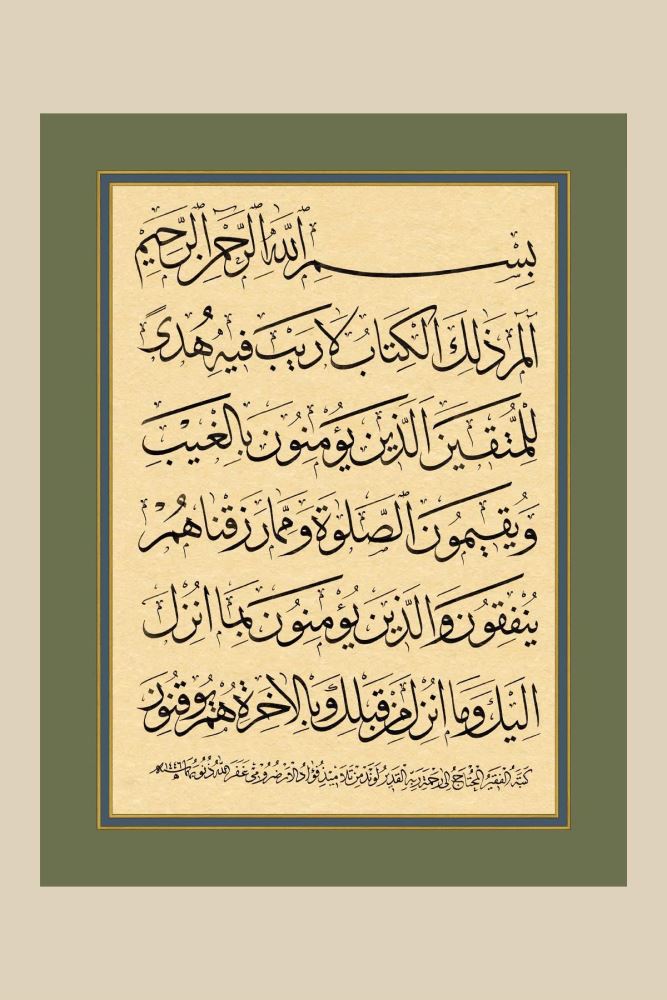 بِسْمِ اللّٰهِ الرَّحْمٰنِ الرَّحِيمِ
الٓمٓ ذٰلِكَ الْكِتَابُ لَا رَيْبَ فِيهِ هُدًى
لِلْمُتَّقِينَ الَّذِينَ يُؤْمِنُونَ بِالْغَيْبِ
وَيُقِيمُونَ الصَّلٰوةَ وَمِمَّا رَزَقْنَاهُمْ
يُنْفِقُونَ وَالَّذِينَ يُؤْمِنُونَ بِمَا اُنْزِلَ
اِلَيْكَ وَمَا اُنْزِلَ مِنْ قَبْلِكَ وَبِالْاٰخِرَةِ هُمْ يُوقِنُونَ
كتبه الفقير المحتاج الى رحمة ربه القدير لوند من تلاميذ فؤاد الارضرومي غفر الله ذنوبهما ١٤٤٦